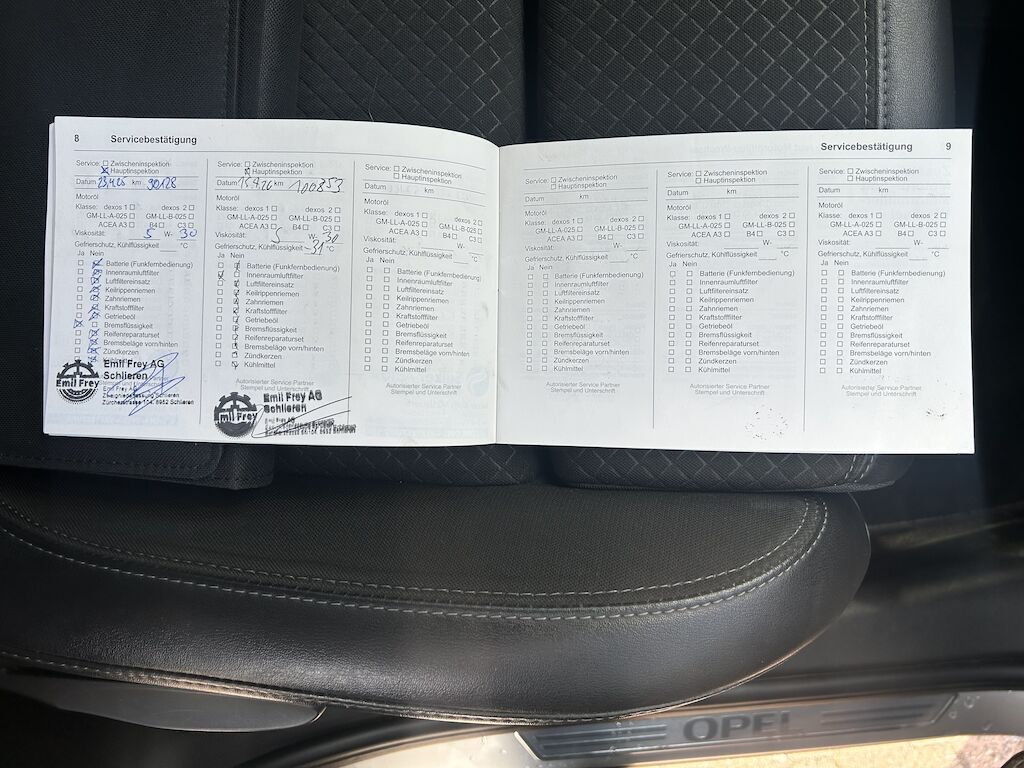 8 Servicebestätigung
Service: ☐ Zwischeninspektion
☒ Hauptinspektion
Datum km 30128
Motoröl
Klasse: dexos 1 ☐ dexos 2 ☐
GM-LL-A-025 ☐ GM-LL-B-025 ☐
ACEA A3 ☐ B4 ☐ C3 ☐
Viskosität: 5 W- 30
Gefrierschutz, Kühlflüssigkeit °C
Ja Nein
Batterie (Funkfernbedienung)
Innenraumluftfilter
Luftfiltereinsatz
Keilrippenriemen
Zahnriemen
Kraftstofffilter
Getriebeöl
Bremsflüssigkeit
Reifenreparaturset
Bremsbeläge vorn/hinten
Zündkerzen
Emil Frey
Emil Frey AG
Schlieren
Emil Frey AG
Zweigniederlassung Schlieren
Zürcherstrasse 104, 8952 Schlieren
Service: ☐ Zwischeninspektion
☒ Hauptinspektion
Datum 15.4.26 km 100853
Motoröl
Klasse: dexos 1 ☐ dexos 2 ☐
GM-LL-A-025 ☐ GM-LL-B-025 ☐
ACEA A3 ☐ B4 ☐ C3 ☐
Viskosität: 5 W- 30
Gefrierschutz, Kühlflüssigkeit -31 °C
Ja Nein
Batterie (Funkfernbedienung)
Innenraumluftfilter
Luftfiltereinsatz
Keilrippenriemen
Zahnriemen
Kraftstofffilter
Getriebeöl
Bremsflüssigkeit
Reifenreparaturset
Bremsbeläge vorn/hinten
Zündkerzen
Kühlmittel
Autorisierter Service Partner
Stempel und Unterschrift
Emil Frey
Emil Frey AG
Schlieren
Service: ☐ Zwischeninspektion
☐ Hauptinspektion
Datum km
Motoröl
Klasse: dexos 1 ☐ dexos 2 ☐
GM-LL-A-025 ☐ GM-LL-B-025 ☐
ACEA A3 ☐ B4 ☐ C3 ☐
Viskosität: W-
Gefrierschutz, Kühlflüssigkeit °C
Ja Nein
☐ ☐ Batterie (Funkfernbedienung)
☐ ☐ Innenraumluftfilter
☐ ☐ Luftfiltereinsatz
☐ ☐ Keilrippenriemen
☐ ☐ Zahnriemen
☐ ☐ Kraftstofffilter
☐ ☐ Getriebeöl
☐ ☐ Bremsflüssigkeit
☐ ☐ Reifenreparaturset
☐ ☐ Bremsbeläge vorn/hinten
☐ ☐ Zündkerzen
☐ ☐ Kühlmittel
Autorisierter Service Partner
Stempel und Unterschrift
Servicebestätigung 9
Service: ☐ Zwischeninspektion
☐ Hauptinspektion
Datum km
Motoröl
Klasse: dexos 1 ☐ dexos 2 ☐
GM-LL-A-025 ☐ GM-LL-B-025 ☐
ACEA A3 ☐ B4 ☐ C3 ☐
Viskosität: W-
Gefrierschutz, Kühlflüssigkeit °C
Ja Nein
☐ ☐ Batterie (Funkfernbedienung)
☐ ☐ Innenraumluftfilter
☐ ☐ Luftfiltereinsatz
☐ ☐ Keilrippenriemen
☐ ☐ Zahnriemen
☐ ☐ Kraftstofffilter
☐ ☐ Getriebeöl
☐ ☐ Bremsflüssigkeit
☐ ☐ Reifenreparaturset
☐ ☐ Bremsbeläge vorn/hinten
☐ ☐ Zündkerzen
☐ ☐ Kühlmittel
Autorisierter Service Partner
Stempel und Unterschrift
Service: ☐ Zwischeninspektion
☐ Hauptinspektion
Datum km
Motoröl
Klasse: dexos 1 ☐ dexos 2 ☐
GM-LL-A-025 ☐ GM-LL-B-025 ☐
ACEA A3 ☐ B4 ☐ C3 ☐
Viskosität: W-
Gefrierschutz, Kühlflüssigkeit °C
Ja Nein
☐ ☐ Batterie (Funkfernbedienung)
☐ ☐ Innenraumluftfilter
☐ ☐ Luftfiltereinsatz
☐ ☐ Keilrippenriemen
☐ ☐ Zahnriemen
☐ ☐ Kraftstofffilter
☐ ☐ Getriebeöl
☐ ☐ Bremsflüssigkeit
☐ ☐ Reifenreparaturset
☐ ☐ Bremsbeläge vorn/hinten
☐ ☐ Zündkerzen
☐ ☐ Kühlmittel
Autorisierter Service Partner
Stempel und Unterschrift
Service: ☐ Zwischeninspektion
☐ Hauptinspektion
Datum km
Motoröl
Klasse: dexos 1 ☐ dexos 2 ☐
GM-LL-A-025 ☐ GM-LL-B-025 ☐
ACEA A3 ☐ B4 ☐ C3 ☐
Viskosität: W-
Gefrierschutz, Kühlflüssigkeit °C
Ja Nein
☐ ☐ Batterie (Funkfernbedienung)
☐ ☐ Innenraumluftfilter
☐ ☐ Luftfiltereinsatz
☐ ☐ Keilrippenriemen
☐ ☐ Zahnriemen
☐ ☐ Kraftstofffilter
☐ ☐ Getriebeöl
☐ ☐ Bremsflüssigkeit
☐ ☐ Reifenreparaturset
☐ ☐ Bremsbeläge vorn/hinten
☐ ☐ Zündkerzen
☐ ☐ Kühlmittel
Autorisierter Service Partner
Stempel und Unterschrift
OPEL